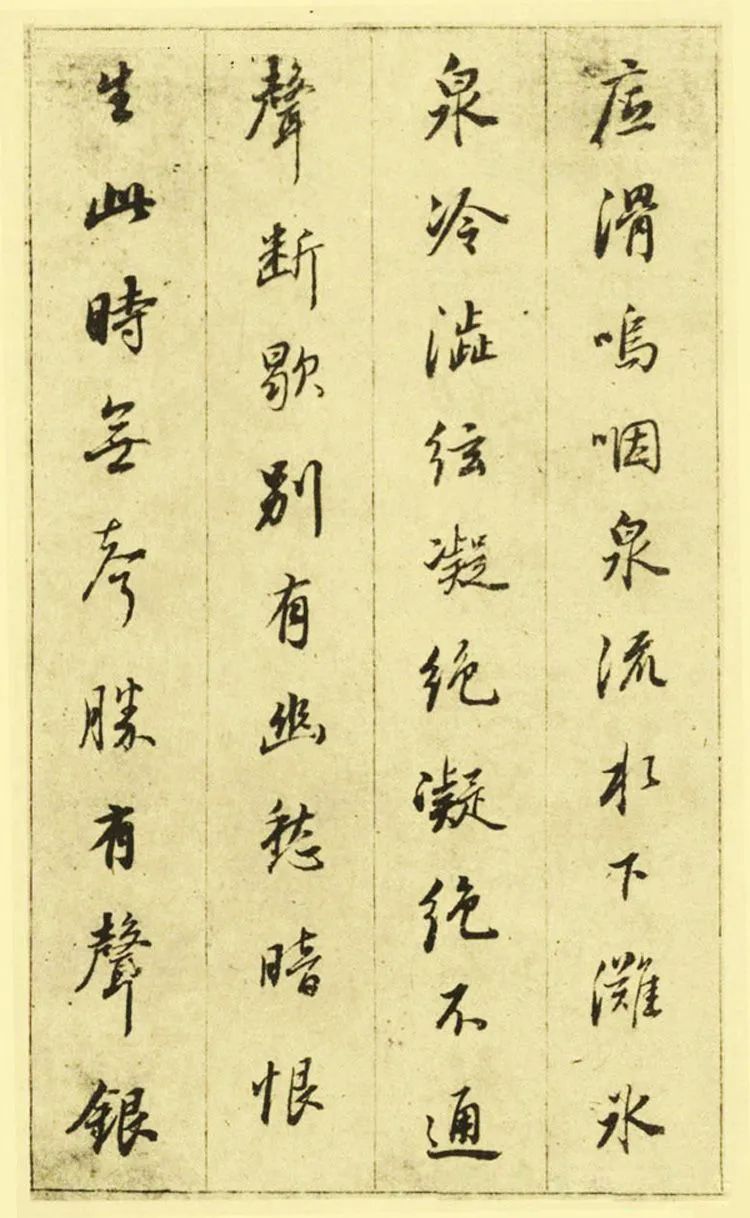 底滑嗚咽泉流水下灘氷
泉冷澁絃凝絶凝絶不通
聲断歇别有幽愁暗恨
生此時無声勝有聲銀